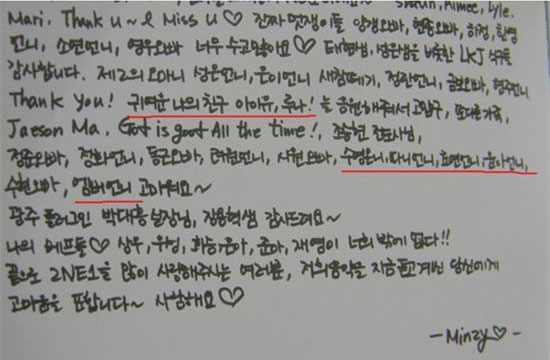 Aimee, Lyle.
Mari, Thank u~& Miss U♡ 진짜 멋쟁이들 양갱오빠, 현종오빠, 하정, 환영
언니, 소연언니, 영우오빠 너무 수고많아요♡ 태현님, 성은님을 비롯한 LKJ 식구들
감사합니다. 제2의 오마니 성은언니, 은미언니 새참떼기, 정란언니, 금보오빠, 현주언니
Thank you! 귀여운 나의 친구 아이유, 루나! 늘 응원해줘서 고맙구, 또다른가족,
Jaeson Ma, God is good All the time!, 조송현 전도사님,
정준오빠, 정화언니, 동근오빠, 려원언니, 시원오빠, 수영언니, 티파니언니, 효연언니, 윤아언니,
수현오빠, 엠버언니 고마워요~
광주 플러그인 박대홍실장님, 장용혁샘 감사드려요~
나의 베프들♡ 상우, 우님, 화승, 준아, 재영이 너희 밖에 없다!!
끝으로 2NE1을 많이 사랑해주시는 여러분, 저희음악을 지금 듣고계신 당신에게
고마움을 표합니다~ 사랑해요♡
-Minzy♡-